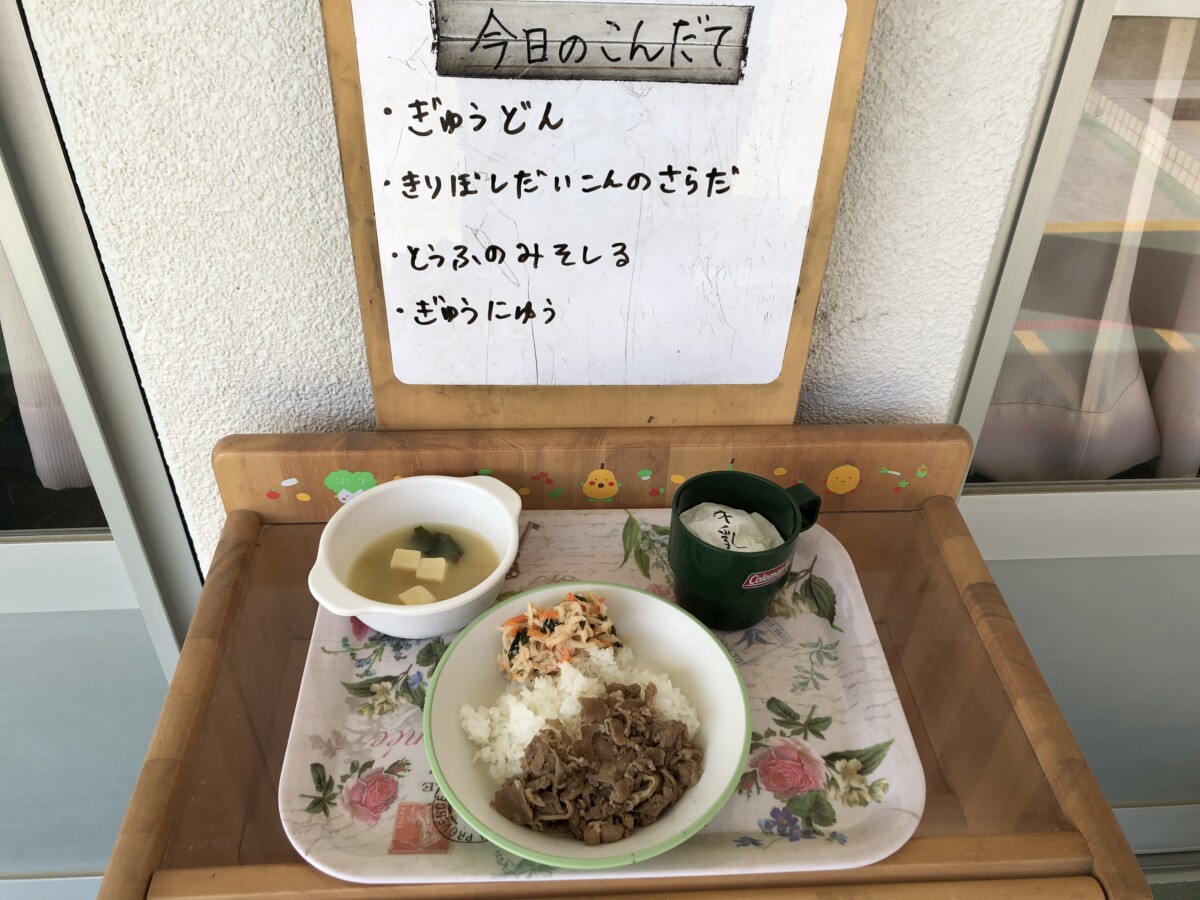 今日のこんだて
・ぎゅうどん
・きりぼしだいこんのさらだ
・とうふのみそしる
・ぎゅうにゅう
Coleman